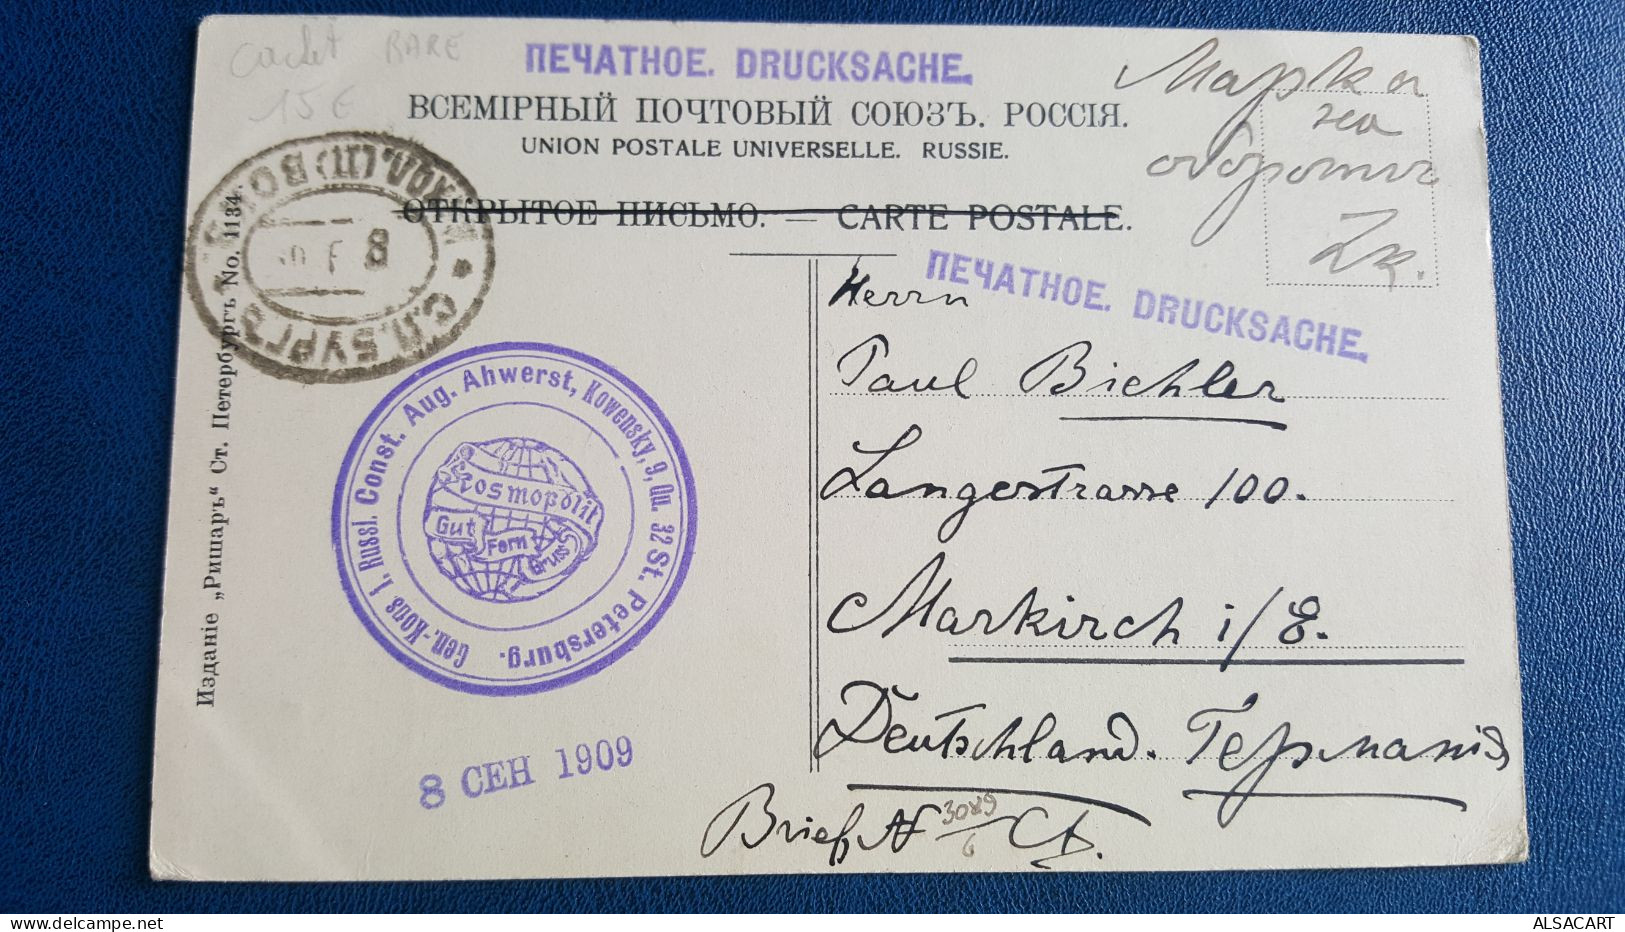 cachet RARE
15€
ПЕЧАТНОЕ. DRUCKSACHE.
ВСЕМІРНЫЙ ПОЧТОВЫЙ СОЮЗЪ. РОССІЯ.
UNION POSTALE UNIVERSELLE. RUSSIE.
ОТКРЫТОЕ ПИСЬМО. — CARTE POSTALE.
Марка
на
обороте
2к.
ПЕЧАТНОЕ. DRUCKSACHE.
С.П.БУРГЪ
8
Изданіе „Ришаръ“ Ст. Петербургъ No. 1134.
Gen.-Kons. f. Russl. Const. Aug. Ahwerst, Kowensky, 9, Qu. 32 St. Petersburg.
Kosmopolit
Gut
Fern
Gruss
8 СЕН 1909
Herrn
Paul Bichler
Langestrasse 100.
Markirch i/E.
Deutschland. Германія
Brief N 3089/6
ALSACART